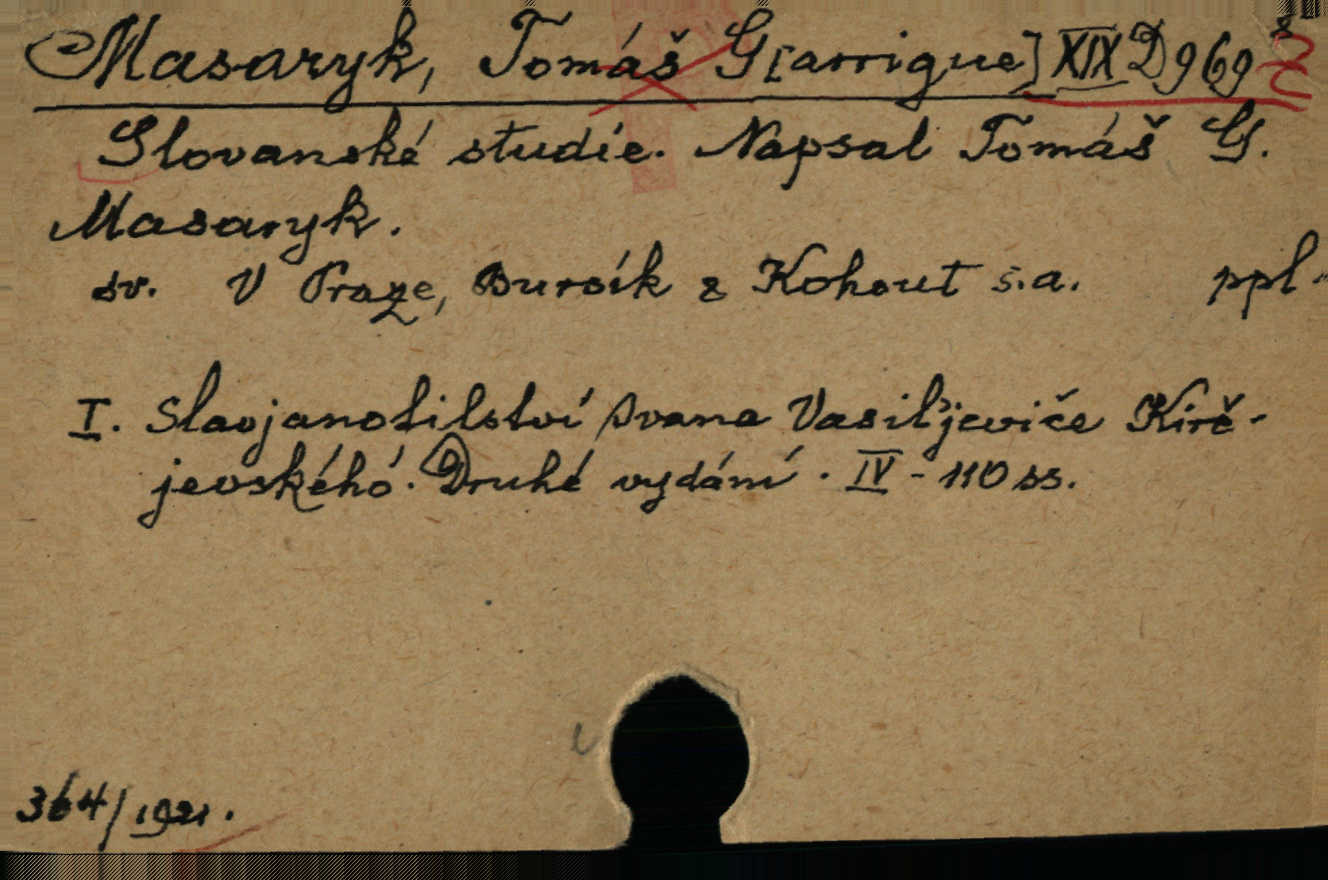 Masaryk, Tomáš G[arrigue] XIX D 969
Slovanské studie. Napsal Tomáš G.
Masaryk.
sv. V Praze, Bursík & Kohout s.a. ppl.
I. Slavjanofilství Ivana Vasiljeviče Kirě-
jevského. Druhé vydání. IV - 110 ss.
364/1921.